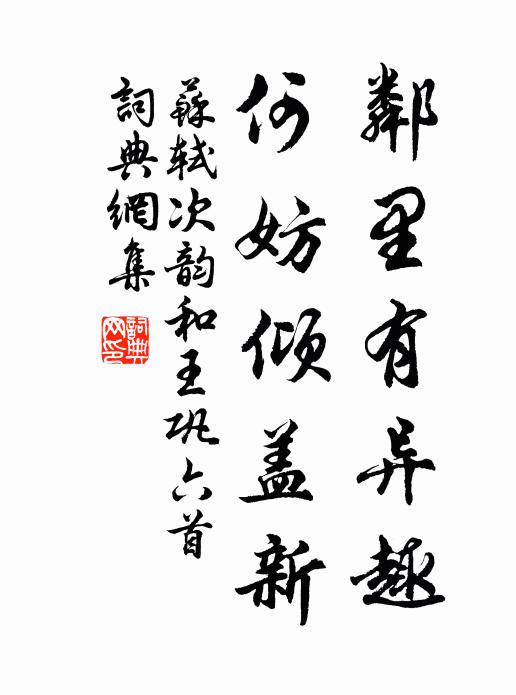 鄰里有异趣
何妨倾盖新
蘇軾次韵和王巩六首
詞典網集
詞典网印